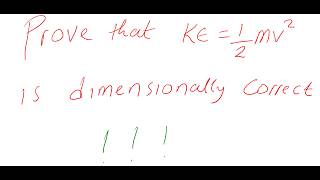 Prove that KE = 1/2 mv²
is dimensionally correct
! ! !